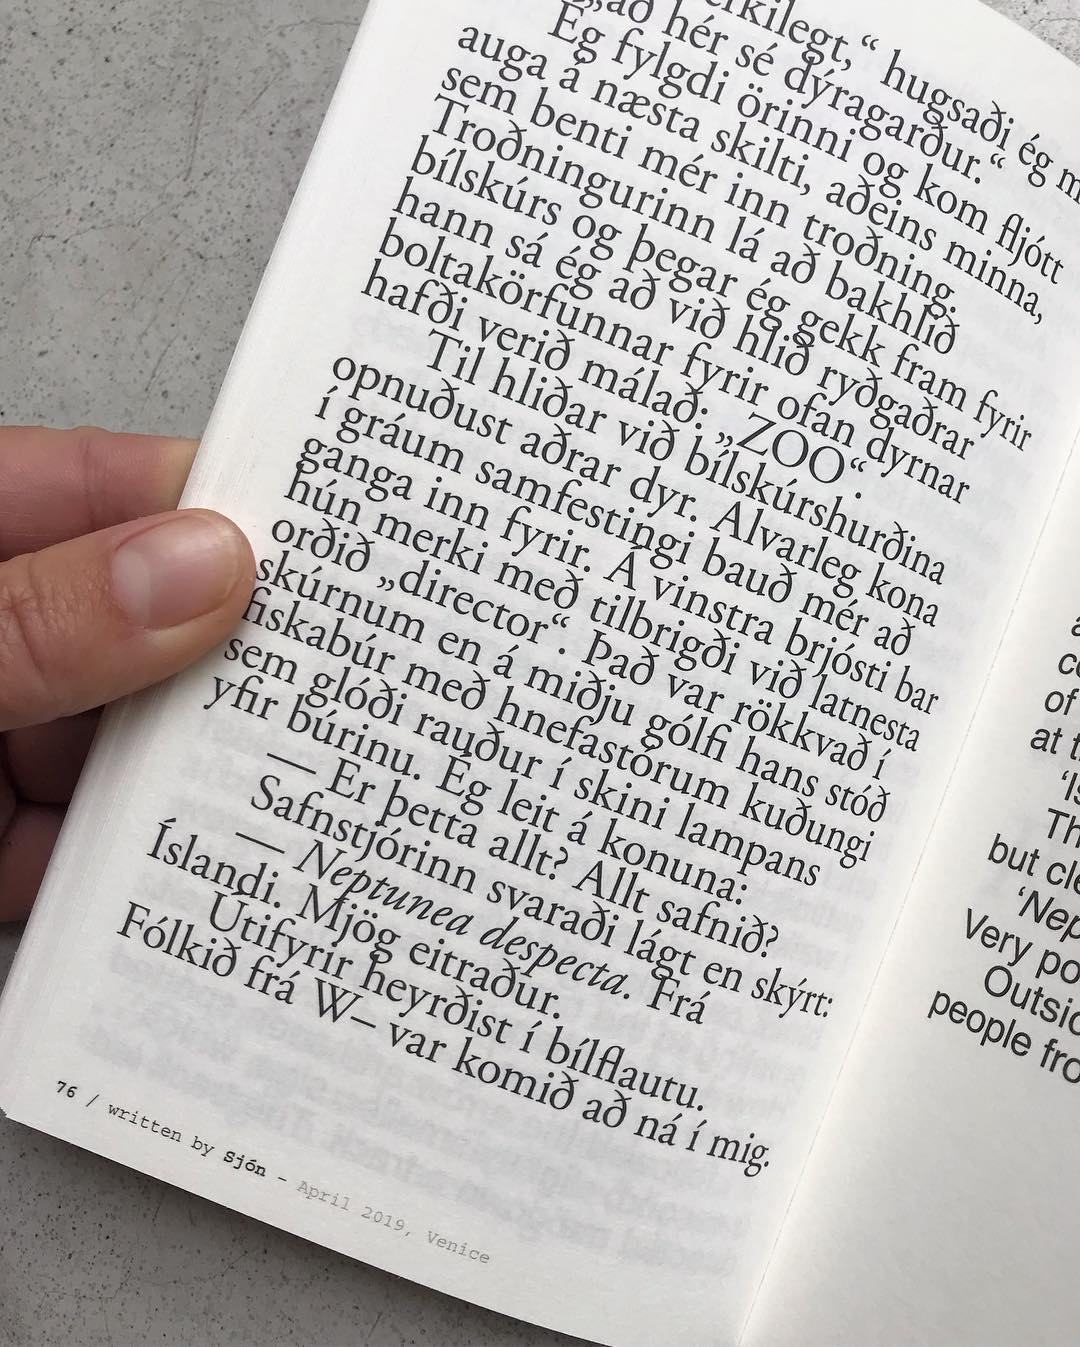 hugsaði ég
„að hér sé dýragarður.“
Ég fylgdi örinni og kom fljótt
auga á næsta skilti, aðeins minna,
sem benti mér inn troðning.
Troðningurinn lá að bakhlið
bílskúrs og þegar ég gekk fram fyrir
hann sá ég að við hlið ryðgaðrar
boltakörfunnar fyrir ofan dyrnar
hafði verið málað: „ZOO“.
Til hliðar við bílskúrshurðina
opnuðust aðrar dyr. Alvarleg kona
í gráum samfestingi bauð mér að
ganga inn fyrir. Á vinstra brjósti bar
hún merki með tilbrigði við latnesta
orðið „director“. Það var rökkvað í
skúrnum en á miðju gólfi hans stóð
fiskabúr með hnefastórum kuðungi
sem glóði rauður í skini lampans
yfir búrinu. Ég leit á konuna:
— Er þetta allt? Allt safnið?
Safnstjórinn svaraði lágt en skýrt:
— Neptunea despecta. Frá
Íslandi. Mjög eitraður.
Útifyrir heyrðist í bílflautu.
Fólkið frá W– var komið að ná í mig.
76 / written by Sjón – April 2019, Venice
of
at
but
Very
people